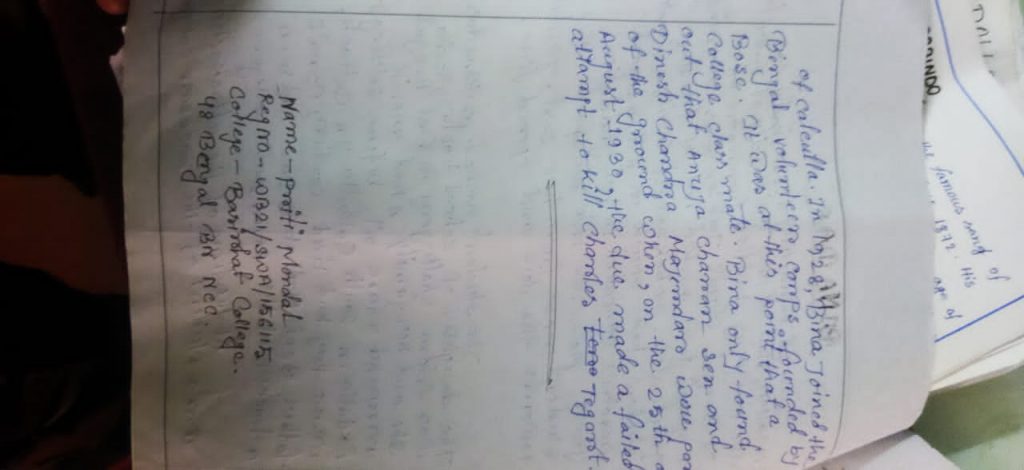 of Calcutta. In 1928, Bina Joined the
Bengal volunteen comps founded by
Bose. It was at this point that a
College class mate. Bina only found
out that Anuja charan sen and
Dinesh Chandra Majumdaro were par
of the ground when, on the 25th
August 1930, the due made a failed
attampt to kill Charles Tegart.
Name - Priti Mondal
Regno - WB21/SWA/156115
College - Basirhat College.
48 Bengal BN NCC.
the famous
1872. His
of